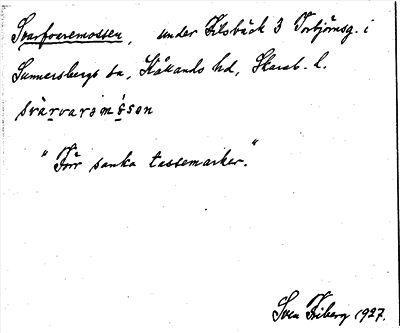 Svarfvaremossen, under Filsbäck 3 Torbjörnsg. i
Sunnersbergs sn, Kåkands hd, Skarab. l.
svàrvarəmòson
"Förr sanka tassemarker."
Sven Friberg 1927.